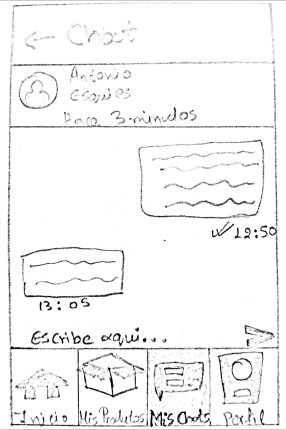 ← Chat
Antonio
Esquies
Hace 3 minutos
12:50
13:05
Escribe aqui...
Inicio Mis Productos Mis Chats Perfil